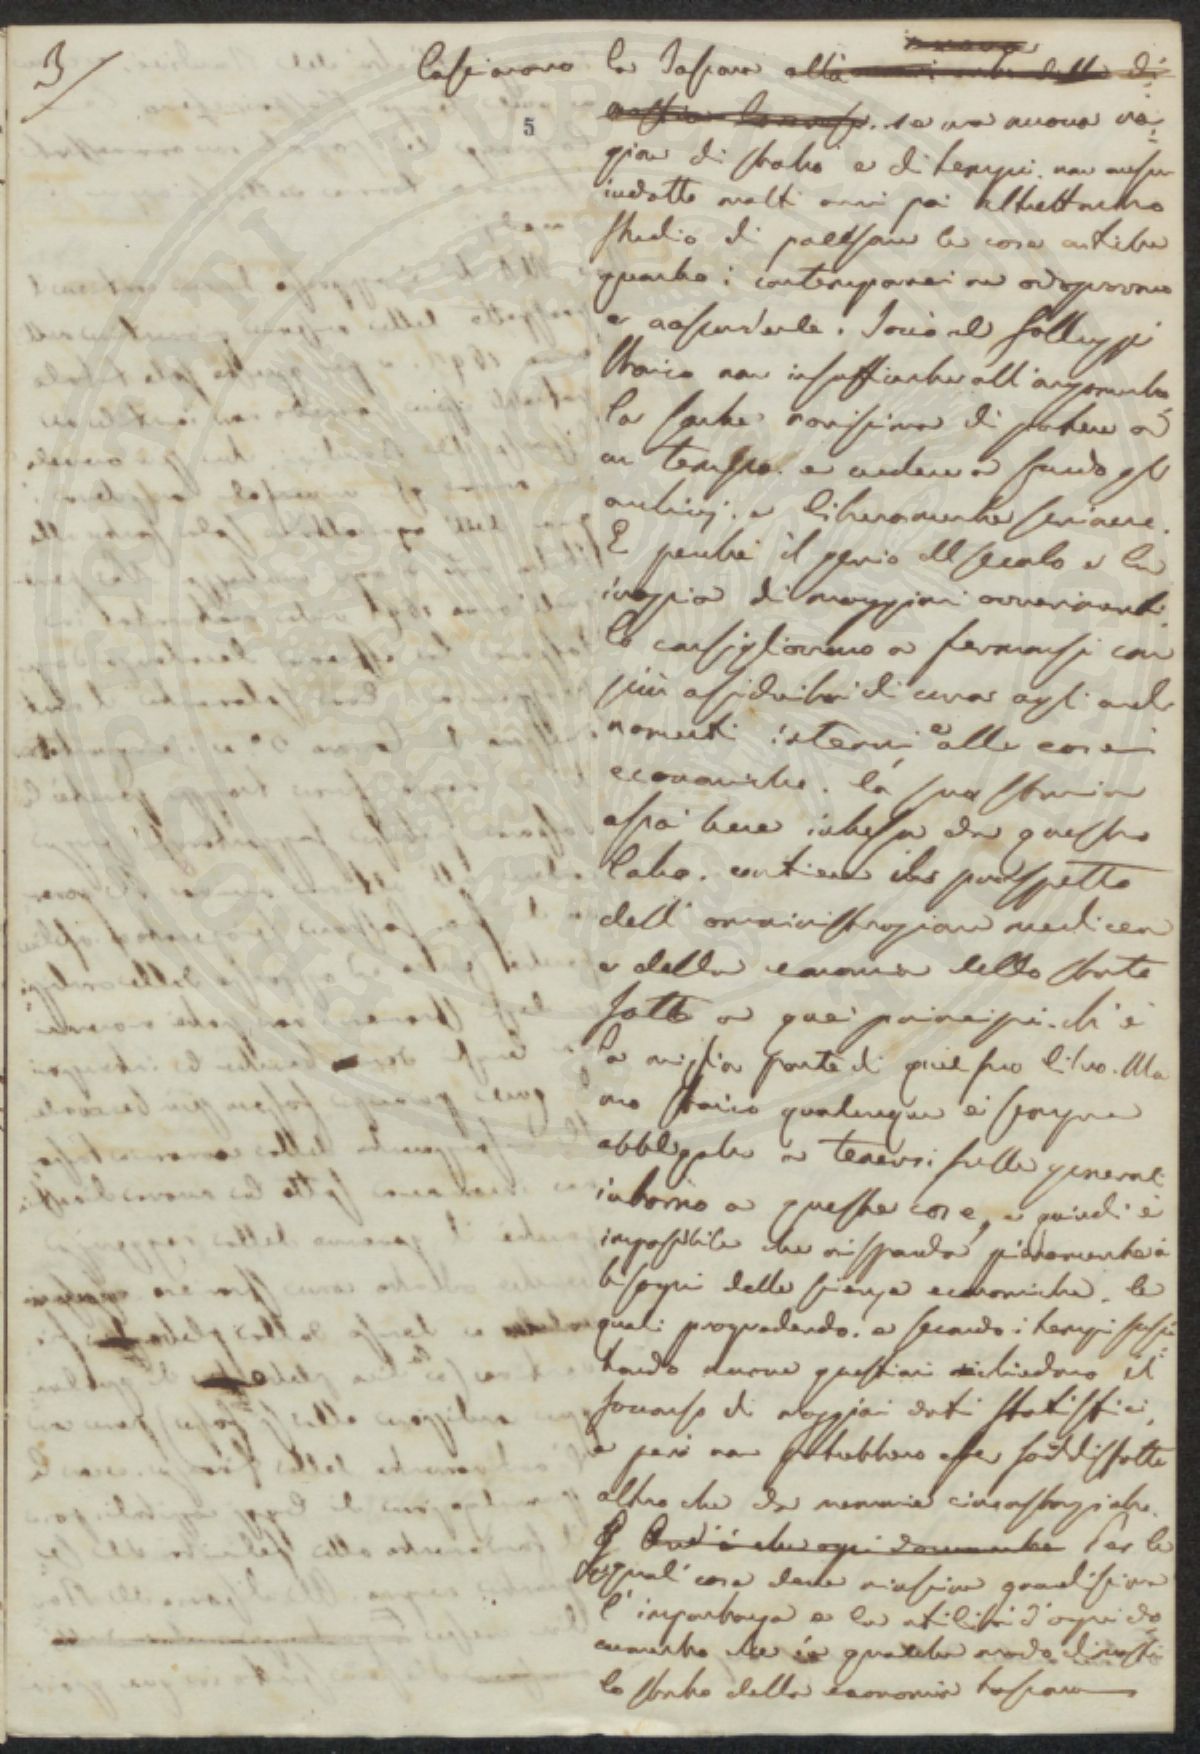 3
5
lasciarono la Toscana alla
se una nuova ra-
gion di stato e di tempi non avesse
indotto molti anni poi altrettanto
studio di palesare le cose antiche
quanto i contemporanei ne adopravano
a nasconderle. Toccò al Galluzzi
storico non insufficiente all'argomento
la sorte rarissima di potere ad
un tempo e vedere a fondo gli
archivj e liberamente scrivere.
E perchè il genio del secolo e la
inopia di maggiori avvenimenti
lo consigliavano a fermarsi con
più assiduità di cura agli anda-
menti interni e alle cose
economiche, la sua storia
assai bene intesa da questo
lato, contiene un prospetto
dell'amministrazione medicea
e della economia dello stato
sotto a quei principi, ch'è
la miglior parte di quel suo libro. Ma
uno storico qualunque è sempre
obbligato a tenersi sulle generali
intorno a queste cose, e quindi è
impossibile che risponda pienamente ai
bisogni delle scienze economiche, le
quali progredendo, e secondo i tempi susci-
tando nuove questioni richiedono il
soccorso di maggiori dati statistici,
e però non potrebbero esser soddisfatte
altro che da memorie circostanziate.
ogni documento Per la
qual cosa deve riuscire grandissima
l'importanza e la utilità d'ogni do-
cumento che in qualche modo dimostri
lo stato della economia toscana